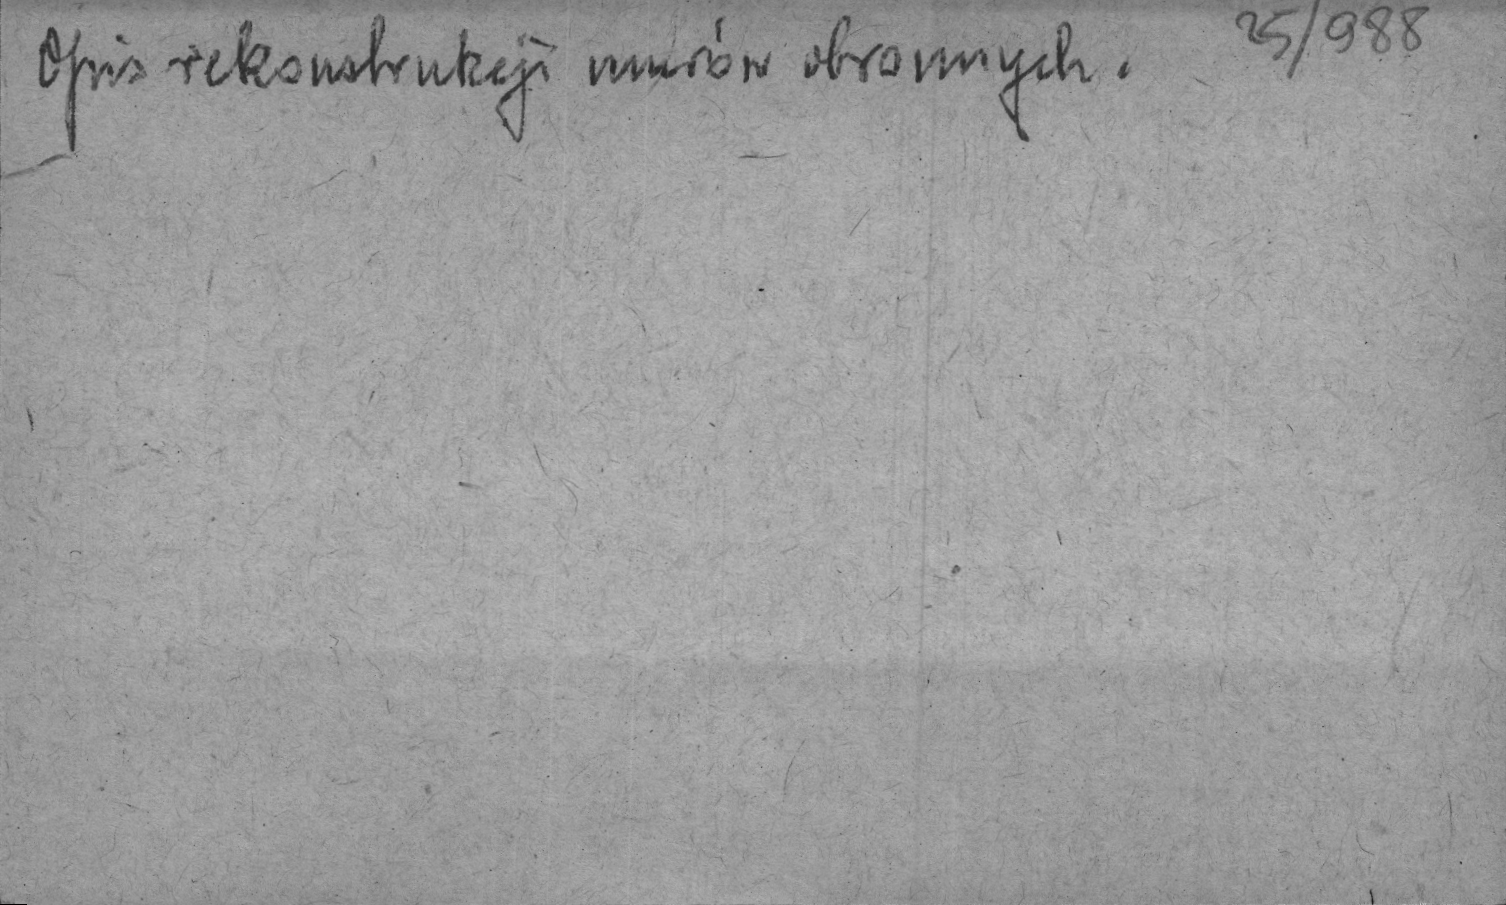 Opis rekonstrukcji murów obronnych. 25/988